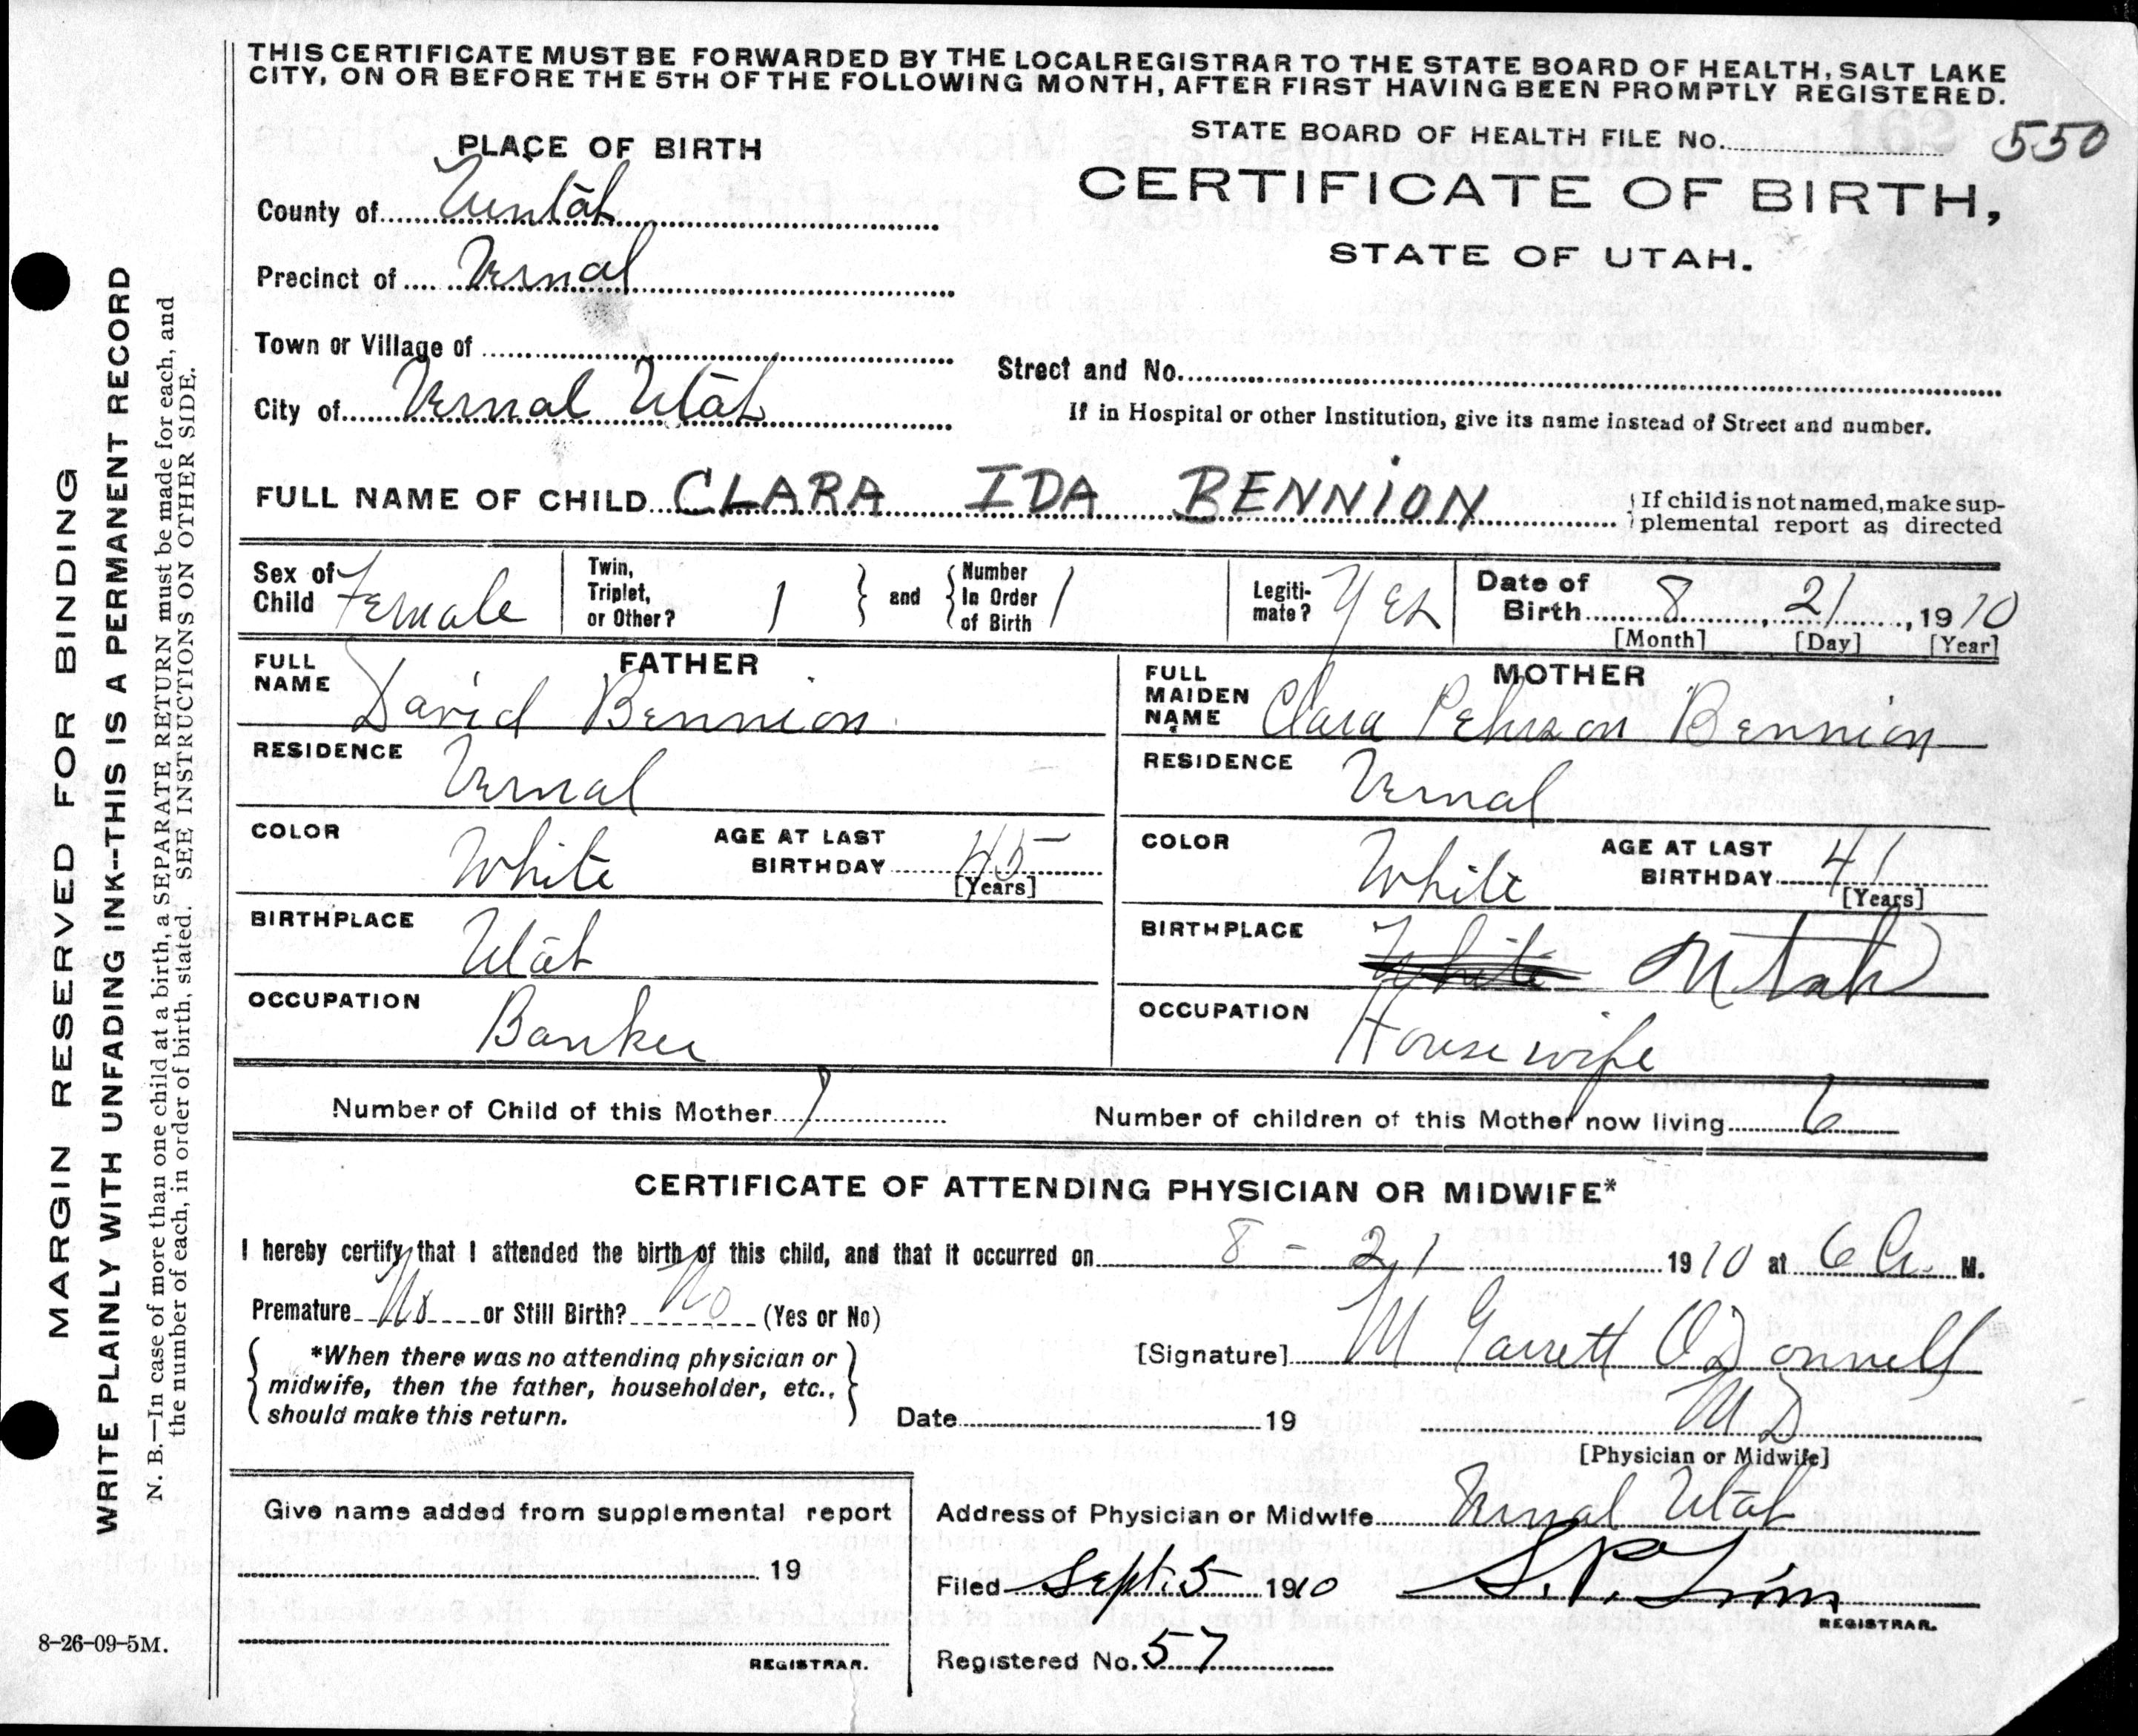 THIS CERTIFICATE MUST BE FORWARDED BY THE LOCAL REGISTRAR TO THE STATE BOARD OF HEALTH, SALT LAKE
CITY, ON OR BEFORE THE 5TH OF THE FOLLOWING MONTH, AFTER FIRST HAVING BEEN PROMPTLY REGISTERED.
STATE BOARD OF HEALTH FILE No. 550
CERTIFICATE OF BIRTH,
STATE OF UTAH.
PLACE OF BIRTH
County of Uintah
Precinct of Vernal
Town or Village of
City of Vernal Utah
Street and No.
If in Hospital or other Institution, give its name instead of Street and number.
FULL NAME OF CHILD CLARA IDA BENNION
If child is not named, make sup-
plemental report as directed
Sex of Child Female
Twin, Triplet, or Other? 1
and Number In Order of Birth 1
Legiti-mate? Yes
Date of Birth 8, 21, 1910
[Month] [Day] [Year]
FATHER
FULL NAME David Bennion
RESIDENCE Vernal
COLOR White AGE AT LAST BIRTHDAY 45
[Years]
BIRTHPLACE Utah
OCCUPATION Banker
MOTHER
FULL MAIDEN NAME Clara Pehrson Bennion
RESIDENCE Vernal
COLOR White AGE AT LAST BIRTHDAY 41
[Years]
BIRTHPLACE White Utah
OCCUPATION Housewife
Number of Child of this Mother 7
Number of children of this Mother now living 6
CERTIFICATE OF ATTENDING PHYSICIAN OR MIDWIFE*
I hereby certify that I attended the birth of this child, and that it occurred on 8 - 21 1910 at 6 a. M.
Premature No or Still Birth? No (Yes or No)
*When there was no attending physician or
midwife, then the father, householder, etc.,
should make this return.
[Signature] M Garrett O'Donnell
Date 19
M D
[Physician or Midwife]
Give name added from supplemental report
19
REGISTRAR.
Address of Physician or Midwife Vernal Utah
Filed Sept. 5 1910
REGISTRAR.
Registered No. 57
MARGIN RESERVED FOR BINDING
WRITE PLAINLY WITH UNFADING INK--THIS IS A PERMANENT RECORD
N. B.—In case of more than one child at a birth, a SEPARATE RETURN must be made for each, and
the number of each, in order of birth, stated. SEE INSTRUCTIONS ON OTHER SIDE.
8-26-09-5M.